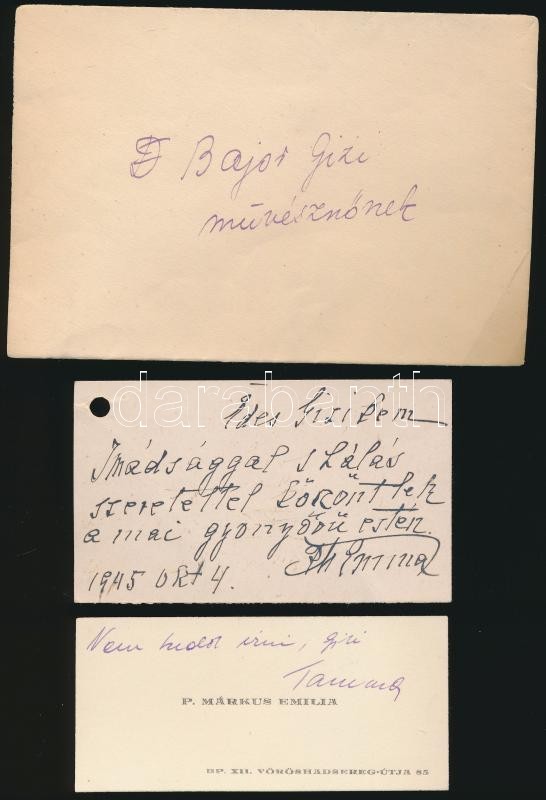 Bajor Gizi
művésznőnek
Édes Gizikém
Imádsággal s hálás
szeretettel köszöntlek
a mai gyönyörű estén.
1945 okt 4.
Nem tudok írni, Gizi
P. MÁRKUS EMILIA
BP. XII. VÖRÖSHADSEREG-ÚTJA 85
darabanth